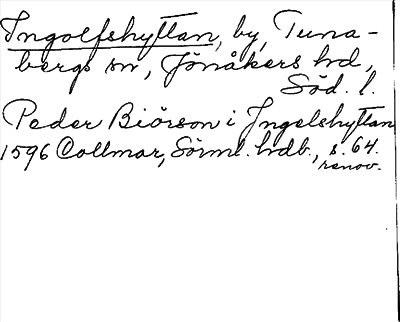 Ingolfshyttan, by, Tuna-
bergs sn, Jönåkers hd,
Söd. l.
Peder Biörson i Ingelshyttan
1596 Collmar, Sörml. hdb., s. 64.
renov.